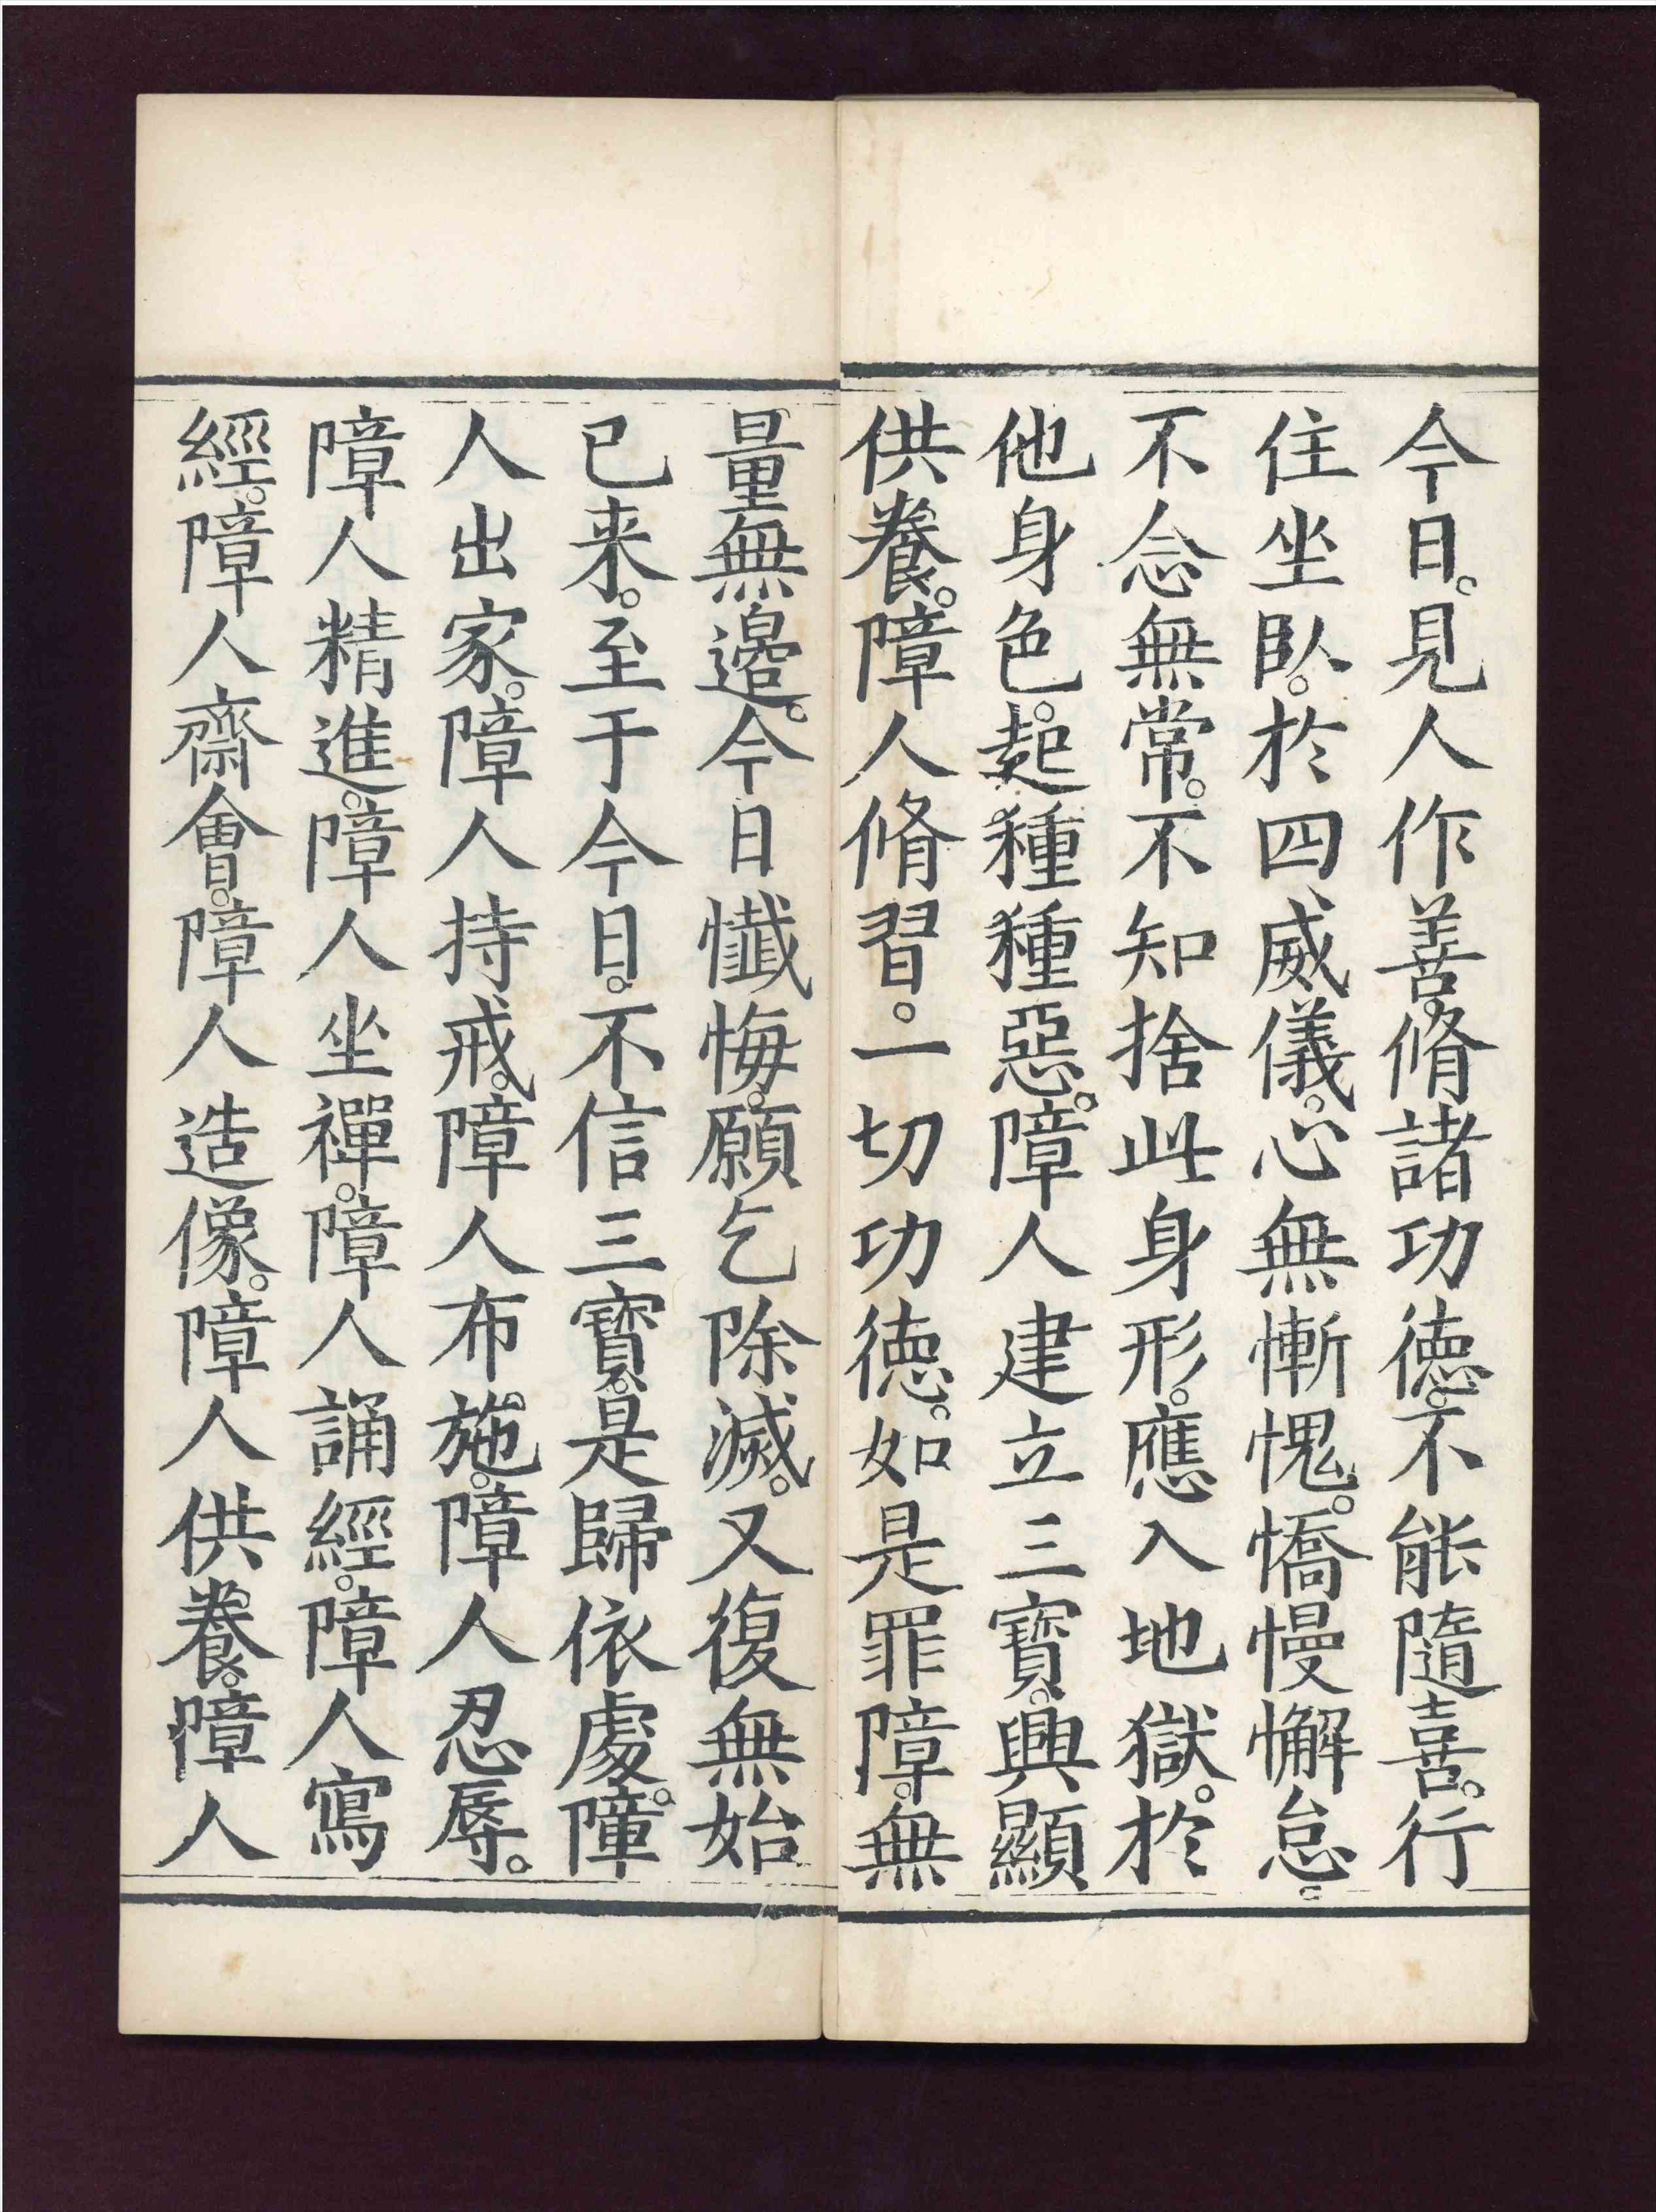 今日。見人作善。脩諸功德。不能隨喜。行
住坐臥。於四威儀。心無慚愧。憍慢懈怠。
不念無常。不知捨此身形。應入地獄。於
他身色。起種種惡。障人建立三寶。興顯
供養。障人脩習。一切功德。如是罪障。無
量無邊。今日懺悔。願乞除滅。又復無始
已来。至于今日。不信三寶。是歸依處。障
人出家。障人持戒。障人布施。障人忍辱。
障人精進。障人坐禪。障人誦經。障人寫
經。障人齋會。障人造像。障人供養。障人